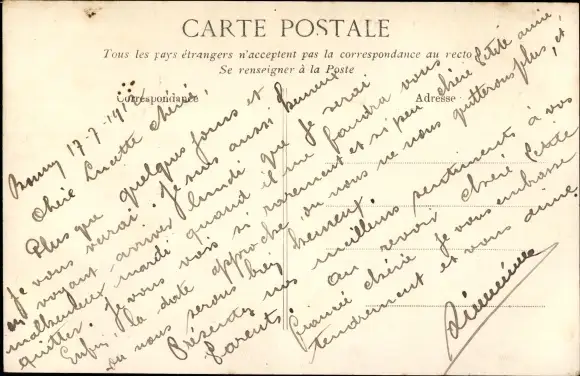 CARTE POSTALE
Tous les pays étrangers n'acceptent pas la correspondance au recto
Se renseigner à la Poste
Correspondance
Adresse
17-7-19
Chère Lucette chérie,
Plus que quelques jours et
je vous verai. Je suis aussi heureux
en voyant arriver lundi que je serai
malheureux mardi quand il me faudra vous
quitter. Je vous vois si rarement et si peu chère petite amie,
Enfin, la date approche, où nous ne nous quitterons plus, et
où nous serons bien heureux.
Présentez mes meilleurs sentiments à vos
parents.
au revoir chère petite
fiancée chérie je vous embrasse
tendrement et vous aime.